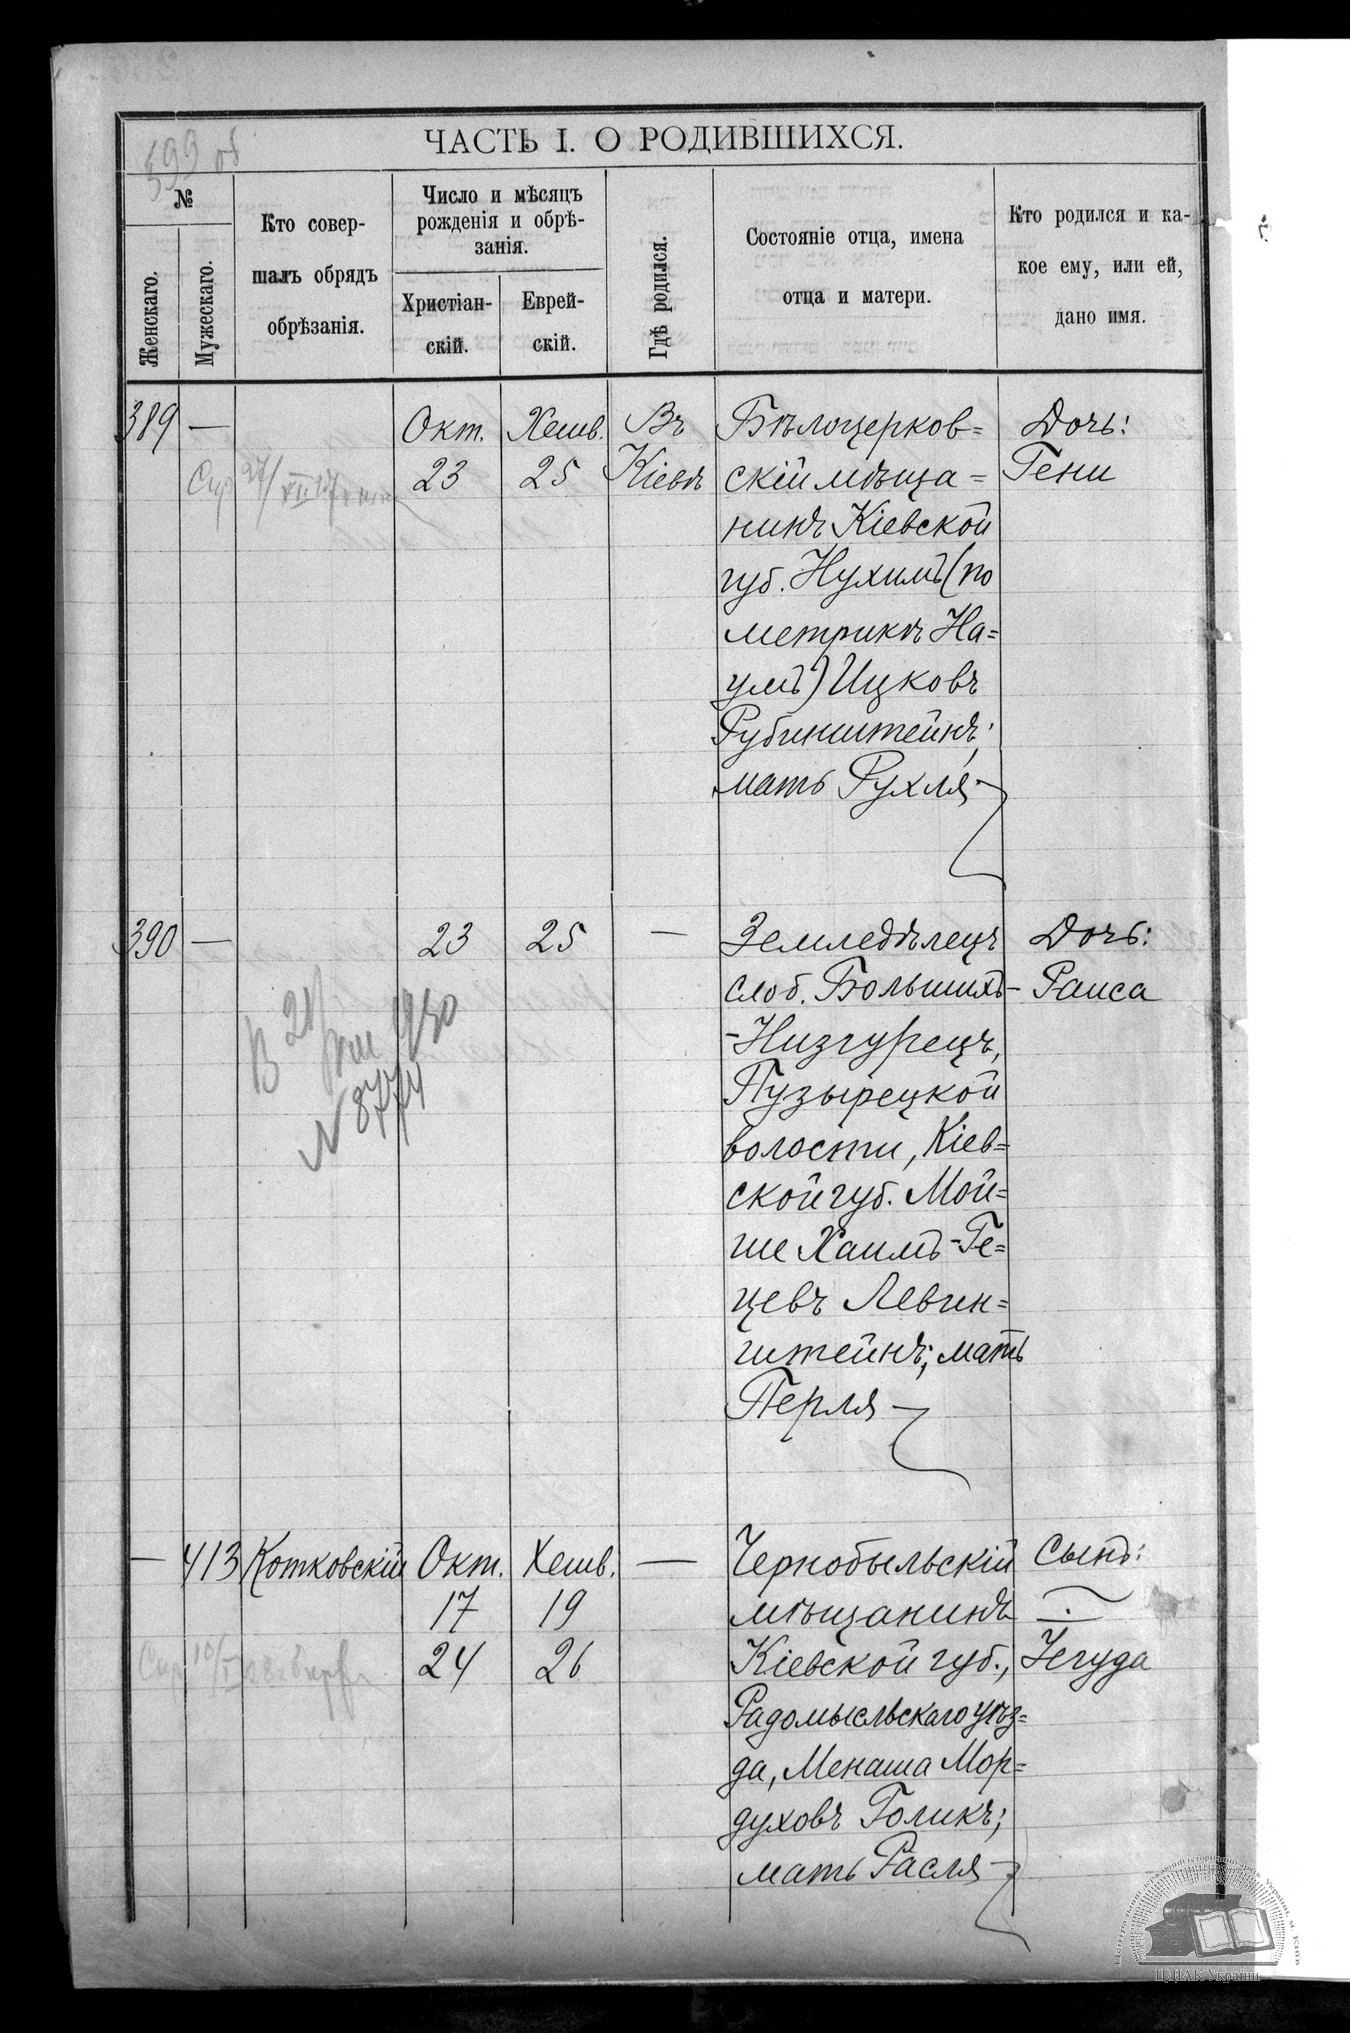 599 об
ЧАСТЬ I. О РОДИВШИХСЯ.
№
Женскаго.
Мужескаго.
Кто совер-
шалъ обрядъ
обрѣзанія.
Число и мѣсяцъ
рожденія и обрѣ-
занія.
Христіан-
скій.
Еврей-
скій.
Гдѣ родился.
Состояніе отца, имена
отца и матери.
Кто родился и ка-
кое ему, или ей,
дано имя.
389 —
Окт.
23
Хешв.
25
Въ
Кіевѣ
Бѣлоцерков=
скій мѣща=
нинъ Кіевской
губ. Нухимъ (по
метрикѣ На=
умъ) Ицковъ
Рубинштейнъ;
мать Рухля
Дочь:
Гени
390 —
23
25
—
Земледѣлецъ
слоб. Большихъ-
-Низгурецъ,
Пузырецкой
волости, Кіев=
ской губ. Мой=
ше Хаимъ-Ге=
цевъ Левин=
штейнъ; мать
Перля
Дочь:
Раиса
В 21/VIII 1930
N 8774
— 413
Котковскій
Окт.
17
24
Хешв.
19
26
—
Чернобыльскій
мѣщанинъ
Кіевской губ.,
Радомысльскаго уѣз=
да, Менаша Мор=
духовъ Голикъ;
мать Расля
Сынъ:
Іегуда
ЦДІАК України